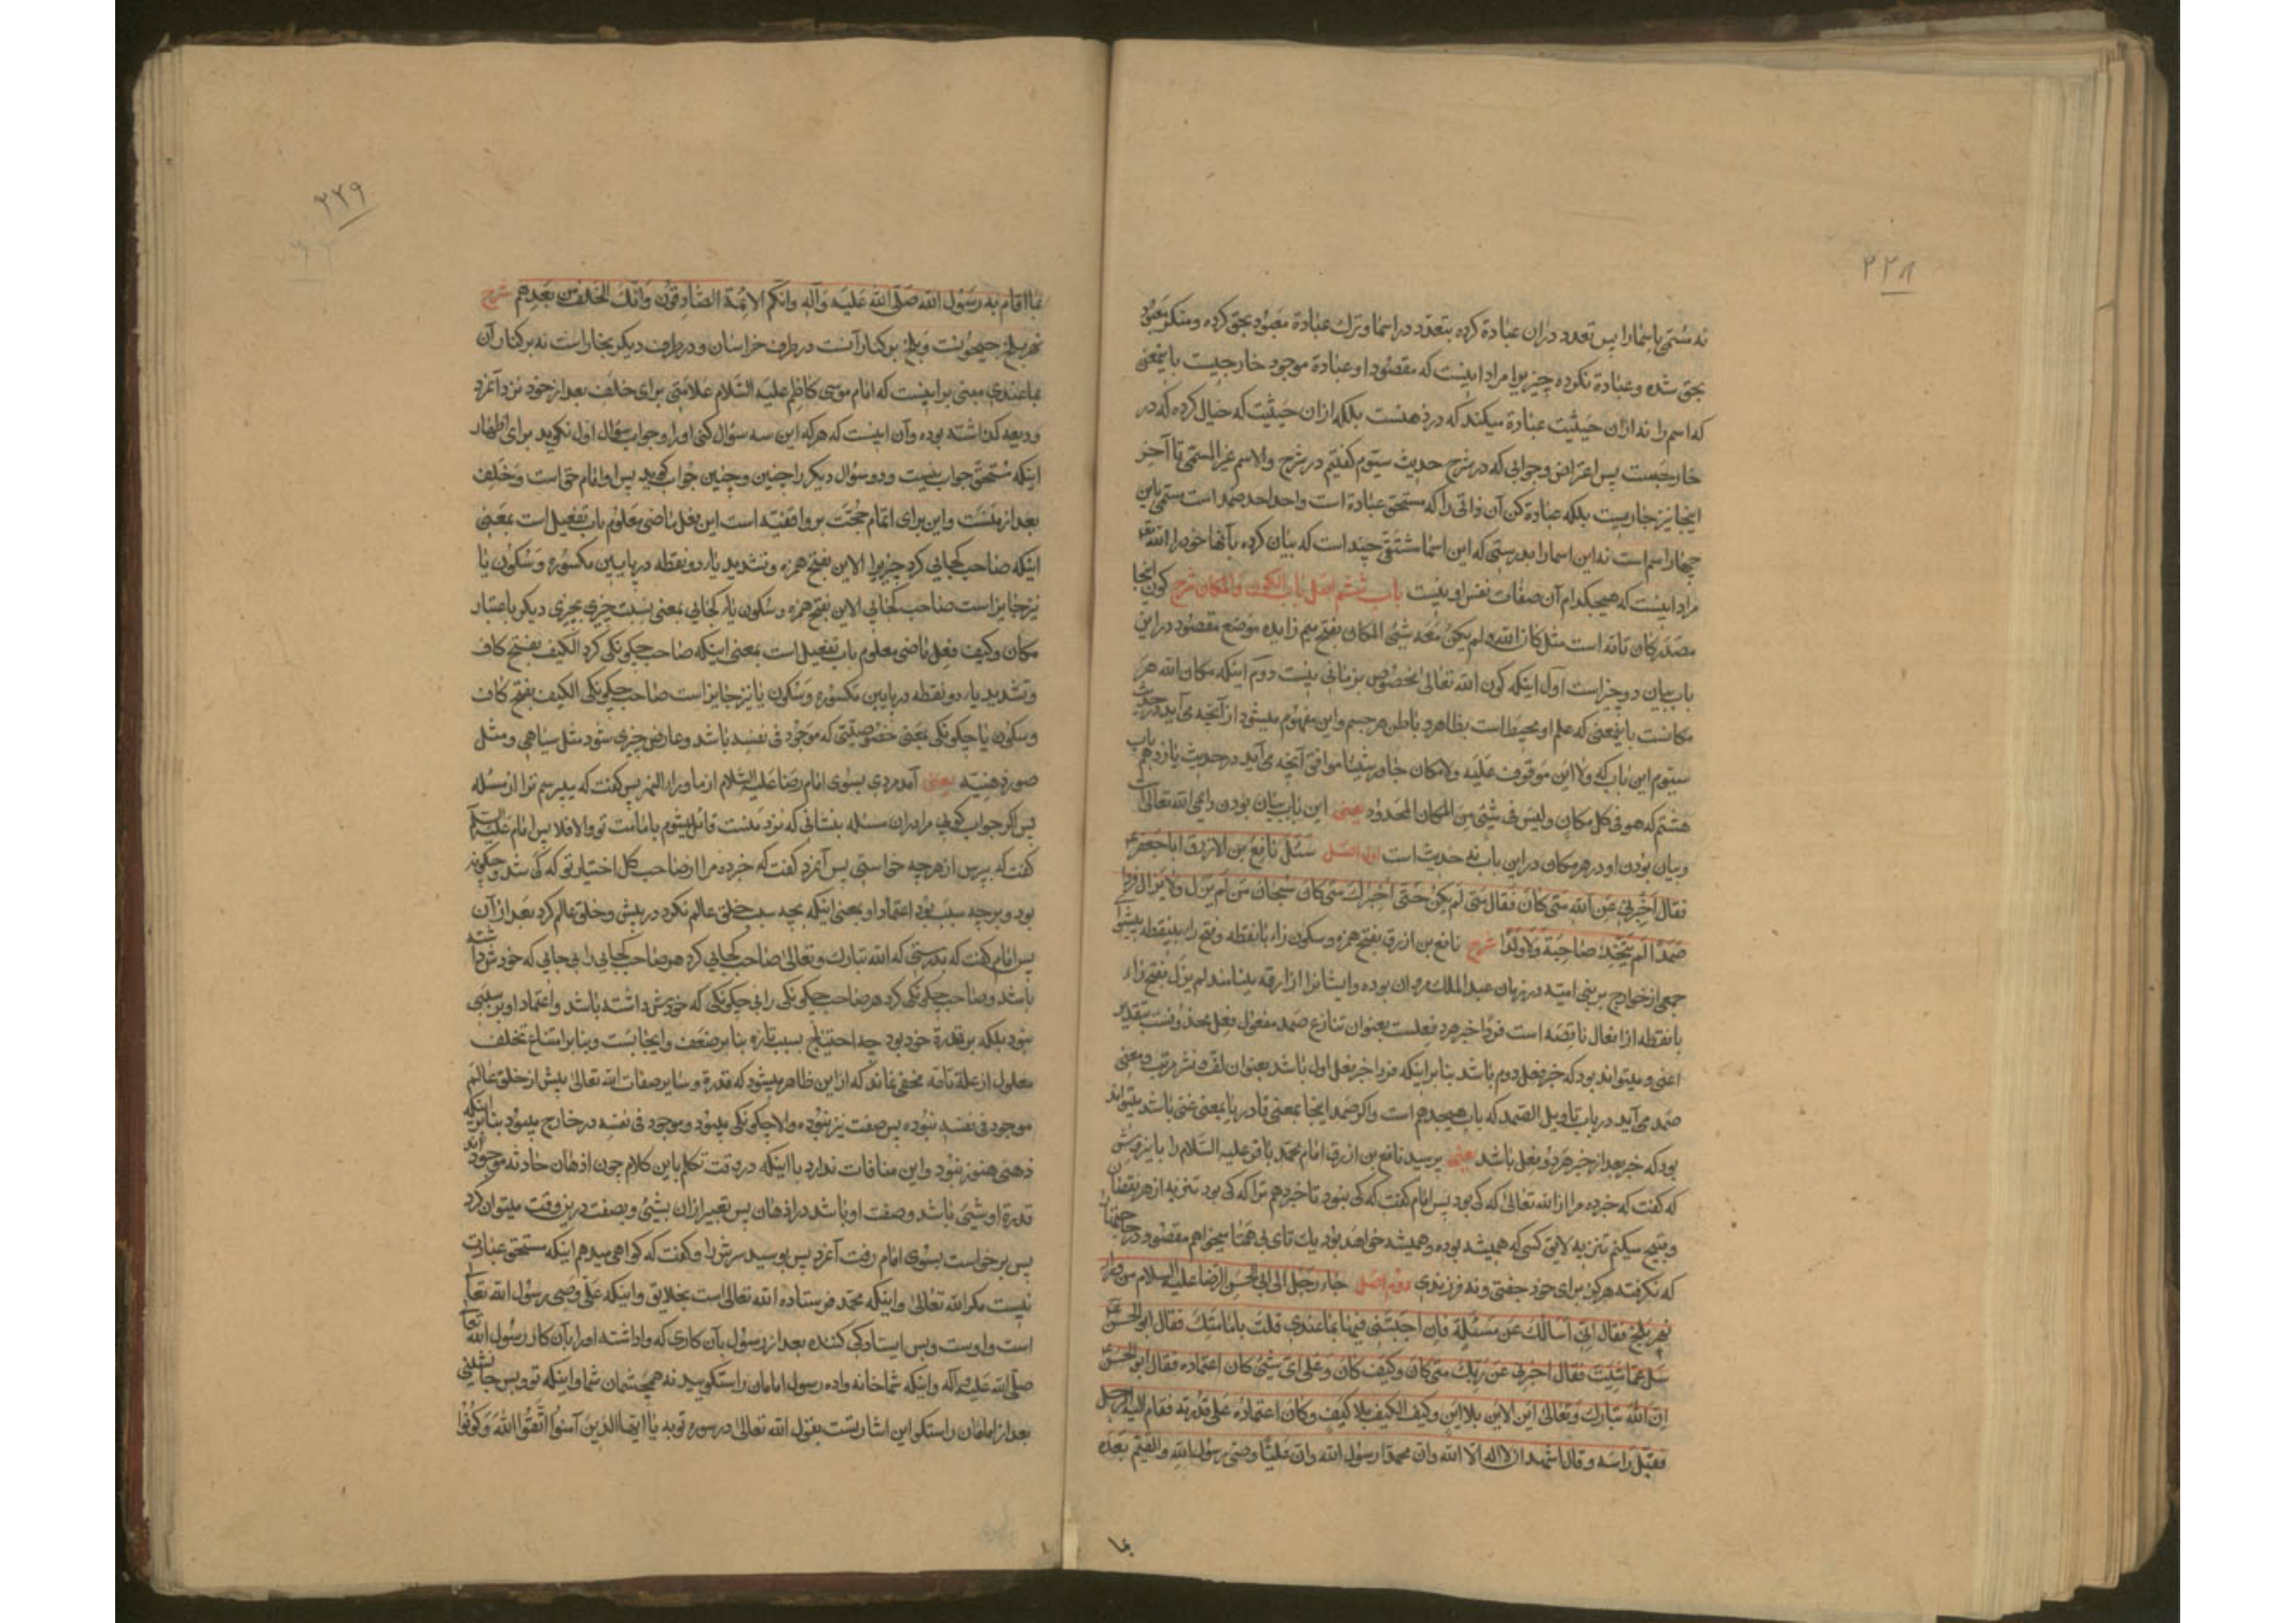 ۲۲۸
نه مسمّی باسما را پس تعدد دران عبادة کرده بتعدّد در اسما و ترك عبادة معبود بحق کرده و منکر معبود
بحق شده و عبادة نکرده چیزیرا مراد اینست که مقصود او عبادة موجود خارجیت باینمعنی
که اسم را نه ازان حیثیت عبادة میکند که در ذهنست بلکه ازان حیثیت که خیال کرده که در
خارجست پس اعتراض و جوابی که در شرح حدیث سیّوم گفتیم در شرح والاسم غیر المسمّی تا آخر
اینجا نیز جاریست بلکه عبادة کن آن ذاتی را که مستحق عبادة است واحد احد صمد است مسمّی باین
چهار اسم است نه این اسما را بدرستی که این اسما مشتقی چند است که بیان کرده بآنها خود را الله تع
مراد اینست که هیچکدام آن صفات نفس او نیست باب ششم اصل باب الکون والمکان شرح کون اینجا
مصدر کان تامّه است مثل کان الله و لم یکن معه شیئ المکان بفتح میم زایده موضع مقصود در این
باب بیان دو چیز است اوّل اینکه کون الله تعالی مخصوص بزمانی نیست دوم اینکه مکان الله هر
مکانست باینمعنی که علم او محیط است بظاهر و باطن هر جسم و این مفهوم میشود از آنچه می آید در حدیث
سیّوم این باب که ولا این موقوف علیه ولا مکان جاور شیئا موافق آنچه می آید در حدیث یازدهم باب
هشتم که هو فی کل مکان ولیس فی شیئ من المکان المحدود یعنی این باب بیان بودن دائمی الله تعالی است
و بیان بودن او در هر مکان در این باب نه حدیث است اول اصل سئل نافع بن الازرق ابا جعفر ع
فقال اخبرنی عن الله متی کان فقال متی لم یکن حتی اخبرك متی کان سبحان من لم یزل ولا یزال فردا
صمدا لم یتخذ صاحبة ولا ولدا شرح نافع بن ازرق بفتح همزه و سکون زاء بانقطه و فتح راء بینقطه پیشوای
جمعی از خوارج بر بنی امیّه در زمان عبد الملك مروان بوده و ایشانرا ازارقه مینامند لم یزل بفتح زاء
بانقطه از افعال ناقصه است فردا خبر هر دو فعلست بعنوان تنازع صمد مفعول فعل محذوفست بتقدیر
اعنی و میتواند بود که خبر فعل دوم باشد بنابر اینکه فردا خبر فعل اول باشد بعنوان لفّ و نشر مرتب و معنی
صمد می آید در باب تاویل الصّمد که باب هیجدهم است و اگر صمد اینجا بمعنی قادر یا بمعنی غنی باشد میتواند
بود که خبر بعد از خبر هر دو فعل باشد یعنی پرسید نافع بن ازرق امام محمّد باقر علیه السّلام را باین روش
که گفت که خبر ده مرا از الله تعالی که کی بود پس امام گفت که کی نبود تا خبر دهم ترا که کی بود تنزیه از هر نقصان
و قبیح میکنم تنزیه لایق کسی که همیشه بوده و همیشه خواهد بود یك تای بی همتا میخواهم مقصود در حاجتها
که نگرفته هرگز برای خود جفتی و نه فرزندی دوم اصل جاء رجل الی ابی الحسن الرّضا علیه السلام من وراء
نهر بلخ فقال انّی اسالك عن مسئلة فان اجبتنی فیها بما عندی قلت بامامتك فقال ابو الحسن ع
سل عمّا شئت فقال اخبرنی عن ربّك متی کان وکیف کان وعلی ایّ شیئ کان اعتماده فقال ابو الحسن ع
انّ الله تبارك وتعالی ایّن الاین بلا این وکیّف الکیف بلا کیف وکان اعتماده علی قدرته فقام الیه الرجل
فقبّل راسه وقال اشهد ان لا اله الّا الله وان محمّدا رسول الله وان علیّا وصی رسول الله والقیّم بعده
بما
۲۲۹
بما اقام به رسول الله صلّی الله علیه وآله وانّکم الائمّة الصّادقون وانّك الخلف من بعدهم شرح
نهر بلخ جیحونست و بلخ بر کنار آنست در طرف خراسان و در طرف دیگر بخارا است نه بر کنار آن
بما عندی مبنی بر اینست که امام موسی کاظم علیه السّلام علامتی برای خلف بعد از خود نزد آنمرد
ودیعه گذاشته بوده و آن اینست که هر که این سه سؤال کنی او را و جواب سؤال اول نگوید برای اظهار
اینکه مستحقّ جواب نیست و دو سؤال دیگر را چنین و چنین جواب گوید پس او امام حق است و خلف
بعد از منست و این برای اتمام حجّت بر واقفیّه است این فعل ماضی معلوم باب تفعیل است بمعنی
اینکه صاحب کجایی کرد چیزیرا الاین بفتح همزه و تشدید یاء دو نقطه در پایین مکسوره و سکون یا
نیز جایز است صاحب کجایی الاین بفتح همزه و سکون یاء کجایی بمعنی نسبت چیزی بچیزی دیگر باعتبار
مکان و کیف فعل ماضی معلوم باب تفعیل است بمعنی اینکه صاحب چگونگی کرد الکیف بفتح کاف
و تشدید یاء دو نقطه در پایین مکسوره و سکون یا نیز جایز است صاحب چگونگی الکیف بفتح کاف
و سکون یا چگونگی بمعنی خصوصیّتی که موجود فی نفسه باشد و عارض چیزی شود مثل سیاهی و مثل
صورة ذهنیّه یعنی آمد مردی بسوی امام رضا علیه السّلام از ماوراء النّهر پس گفت که میپرسم ترا از مسئله
پس اگر جواب گویی مرا دران مسئله بنشانی که نزد منست قائل میشوم بامامت تو والا فلا پس امام علیه السّلام
گفت که بپرس از هر چه خواستی پس آنمرد گفت که خبر ده مرا از صاحب کل اختیار تو که کی شد و چگونه
بود و بر چه سبب بود اعتماد او بمعنی اینکه بچه سبب خلق عالم نکرد در پیش و خلق عالم کرد بعد از آن
پس امام گفت که بدرستی که الله تبارك و تعالی صاحب کجایی کرد هر صاحب کجایی را بی جایی که خودش داشته
باشد و صاحب چگونگی کرد هر صاحب چگونگی را بی چگونگی که خودش داشته باشد و اعتماد او بر سببی
نبود بلکه بر قدرة خود بود چه احتیاج بسبب تازه بنابر ضعف و ایجابست و بنابر امتناع تخلف
معلول از علّة تامّه مخفی نماند که از این ظاهر میشود که قدرة و سایر صفات الله تعالی پیش از خلق عالم
موجود فی نفسه نبوده پس صفت نیز نبوده و الا چگونگی میبود و موجود فی نفسه در خارج میبود بنابر اینکه
ذهنی هنوز نبود و این منافات ندارد با اینکه در وقت تکلم باین کلام چون اذهان حادثه موجودند
قدرة او شیئی باشد و صفت او باشد در اذهان پس تعبیر ازان بشیئ و بصفت درین وقت میتوان کرد
پس برخواست بسوی امام رفت آنمرد پس بوسید سرش را و گفت که گواهی میدهم اینکه مستحق عبادت
نیست مگر الله تعالی و اینکه محمّد فرستاده الله تعالی است بخلایق و اینکه علّی وصی رسول الله تعالی
است و اوست و بس ایستادگی کننده بعد از رسول بآن کاری که واداشته او را بآن کار رسول الله تعالی
صلّی الله علیه وآله و اینکه شما خانه واده رسول امامان راستگویید نه همچشمان شما و اینکه تو و بس جانشینی
بعد از امامان راستگو این اشارتست بقول الله تعالی در سوره توبه یا ایها الذین آمنوا اتّقوا الله وکونوا